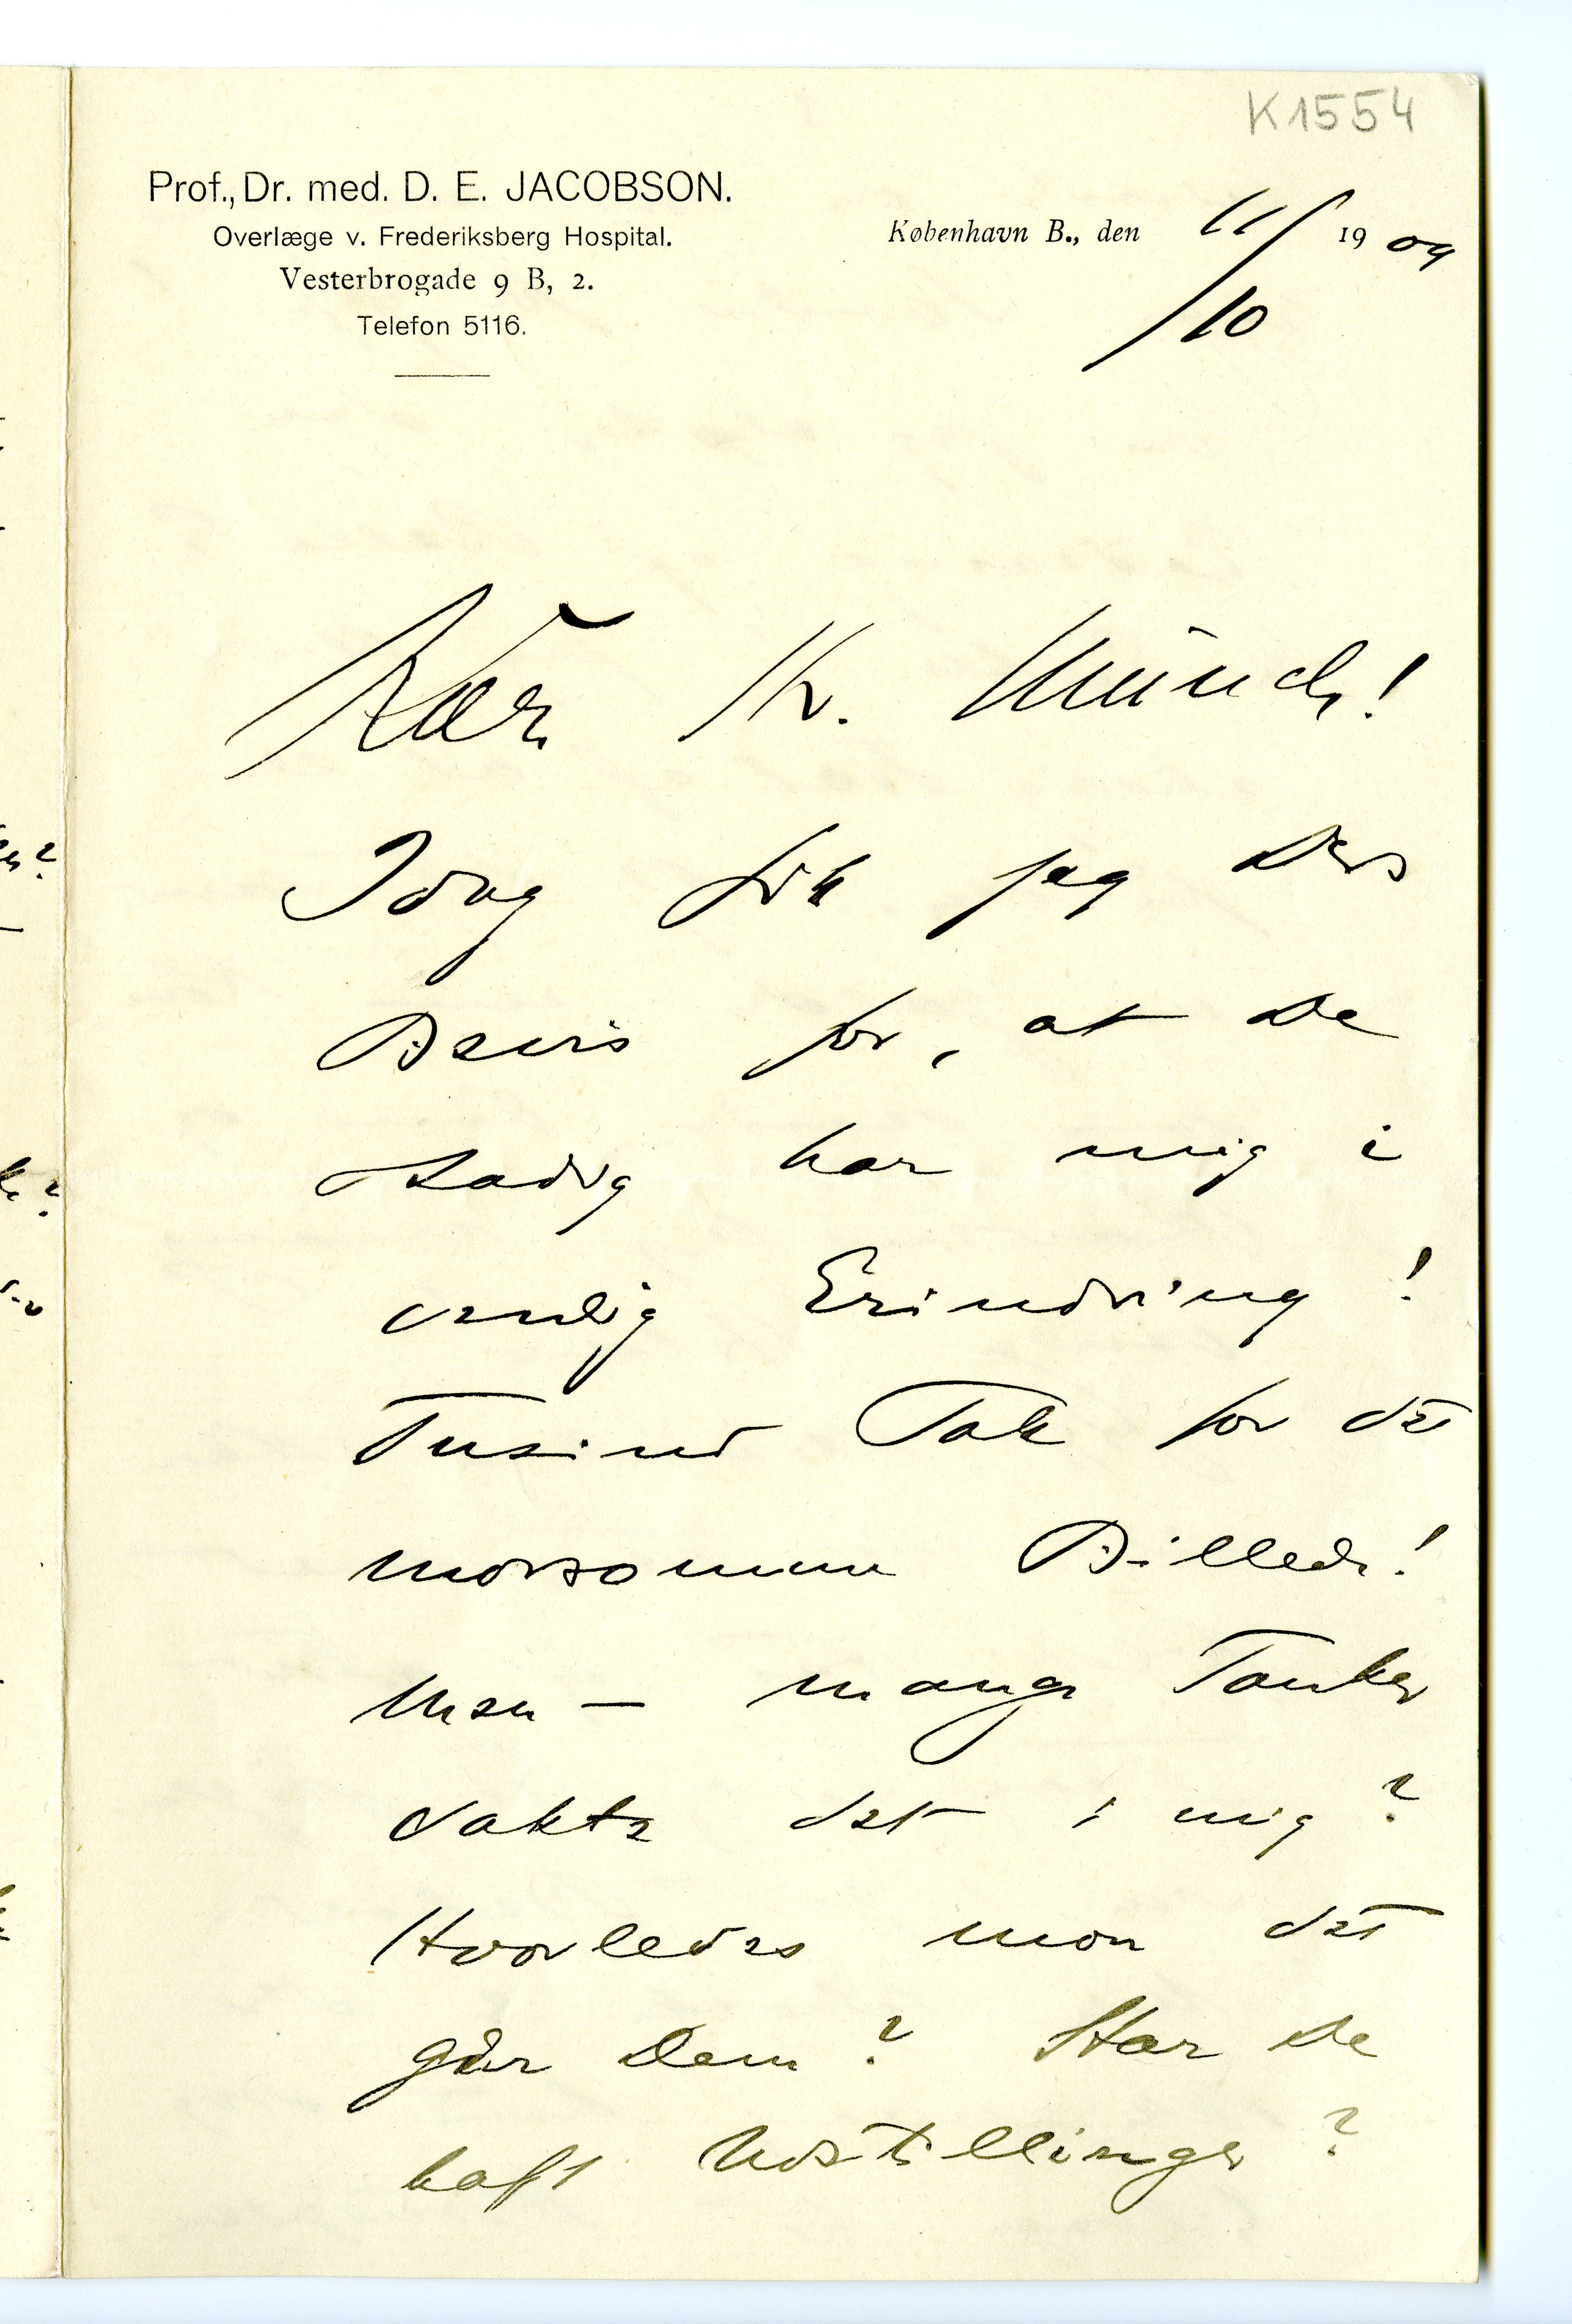 K1554
Prof., Dr. med. D. E. JACOBSON.
Overlæge v. Frederiksberg Hospital.
Vesterbrogade 9 B, 2.
Telefon 5116.
København B., den 11/10 1909
Kær Hr. Münch!
Idag fik jeg Ders
Bevis for, at De
stadig har mig i
venlig Erindring!
Tusind Tak for det
morsomme Billede!
Men — mange Tanker
vakte det i mig?
Hvorledes mon det
går Dem? Har De
haft Udstillinger?